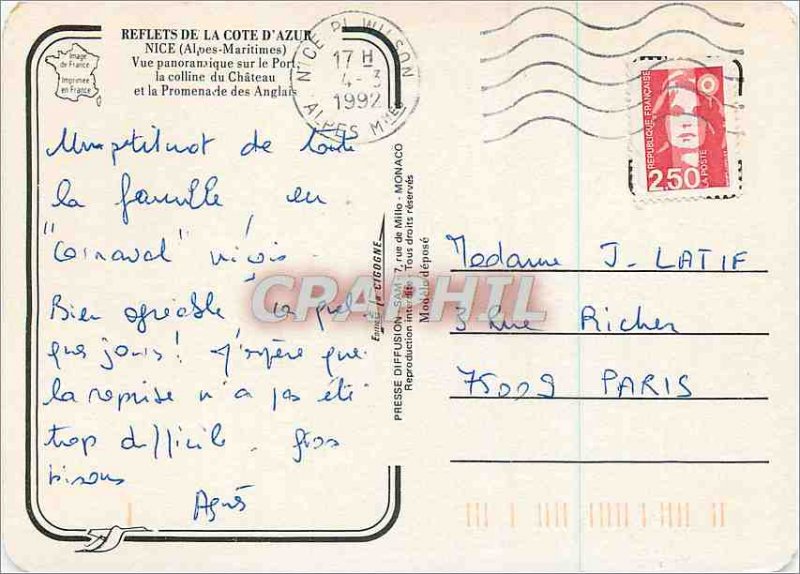 REFLETS DE LA COTE D'AZUR
NICE (Alpes-Maritimes)
Vue panoramique sur le Port,
la colline du Château
et la Promenade des Anglais
Image
de France
Imprimée
en France
NICE PL WILSON
17 H
4-3
1992
ALPES Mmes
REPUBLIQUE FRANÇAISE
2,50
LA POSTE
Un petit mot de toute
la famille en
"Carnaval" niçois.
Bien agréable ces quel-
ques jours! J'espère que
la reprise n'a pas été
trop difficile. gros
bisous
Agnès
Editions la CIGOGNE
PRESSE DIFFUSION - SAM - 7, rue de Millo - MONACO
Reproduction interdite - Tous droits réservés
Modèle déposé
Madame J. LATIF
3 Rue Richer
75009 PARIS
CPARHIL